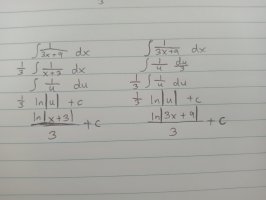 ∫ 1/(3x+9) dx
1/3 ∫ 1/(x+3) dx
1/3 ∫ 1/u du
1/3 ln|u| + c
ln|x+3|/3 + c
∫ 1/(3x+9) dx
∫ 1/u du/3
1/3 ∫ 1/u du
1/3 ln|u| + c
ln|3x+9|/3 + c